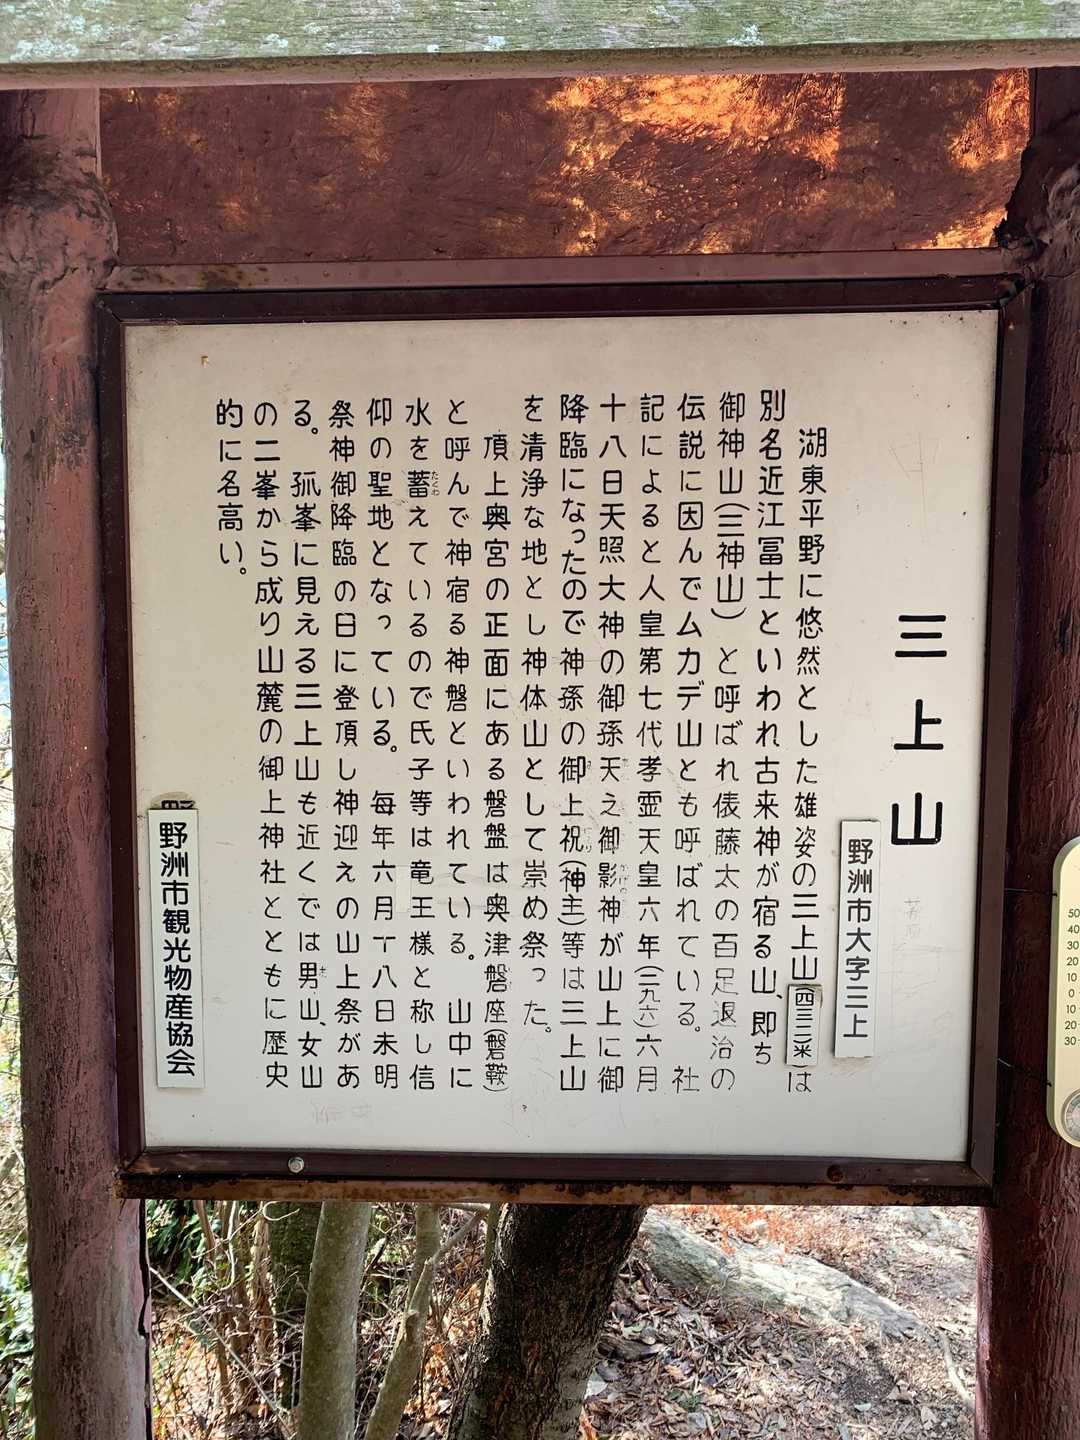 三上山
野洲市大字三上
湖東平野に悠然とした雄姿の三上山(四三二米)は
別名近江冨士といわれ古来神が宿る山、即ち
御神山(三神山)と呼ばれ俵藤太の百足退治の
伝説に因んでムカデ山とも呼ばれている。社
記によると人皇第七代孝霊天皇六年(二九六)六月
十八日天照大神の御孫天之御影神が山上に御
降臨になったので神孫の御上祝(神主)等は三上山
を清浄な地とし神体山として崇め祭った。
頂上奥宮の正面にある磐盤は奥津磐座(磐鞍)
と呼んで神宿る神磐といわれている。山中に
水を蓄えているので氏子等は竜王様と称し信
たくわ
仰の聖地となっている。毎年六月十八日未明
祭神御降臨の日に登頂し神迎えの山上祭があ
る。孤峯に見える三上山も近くでは男山、女山
の二峯から成り山麓の御上神社とともに歴史
的に名高い。
野洲市観光物産協会
50
40
30
20
10
0
10
20
30